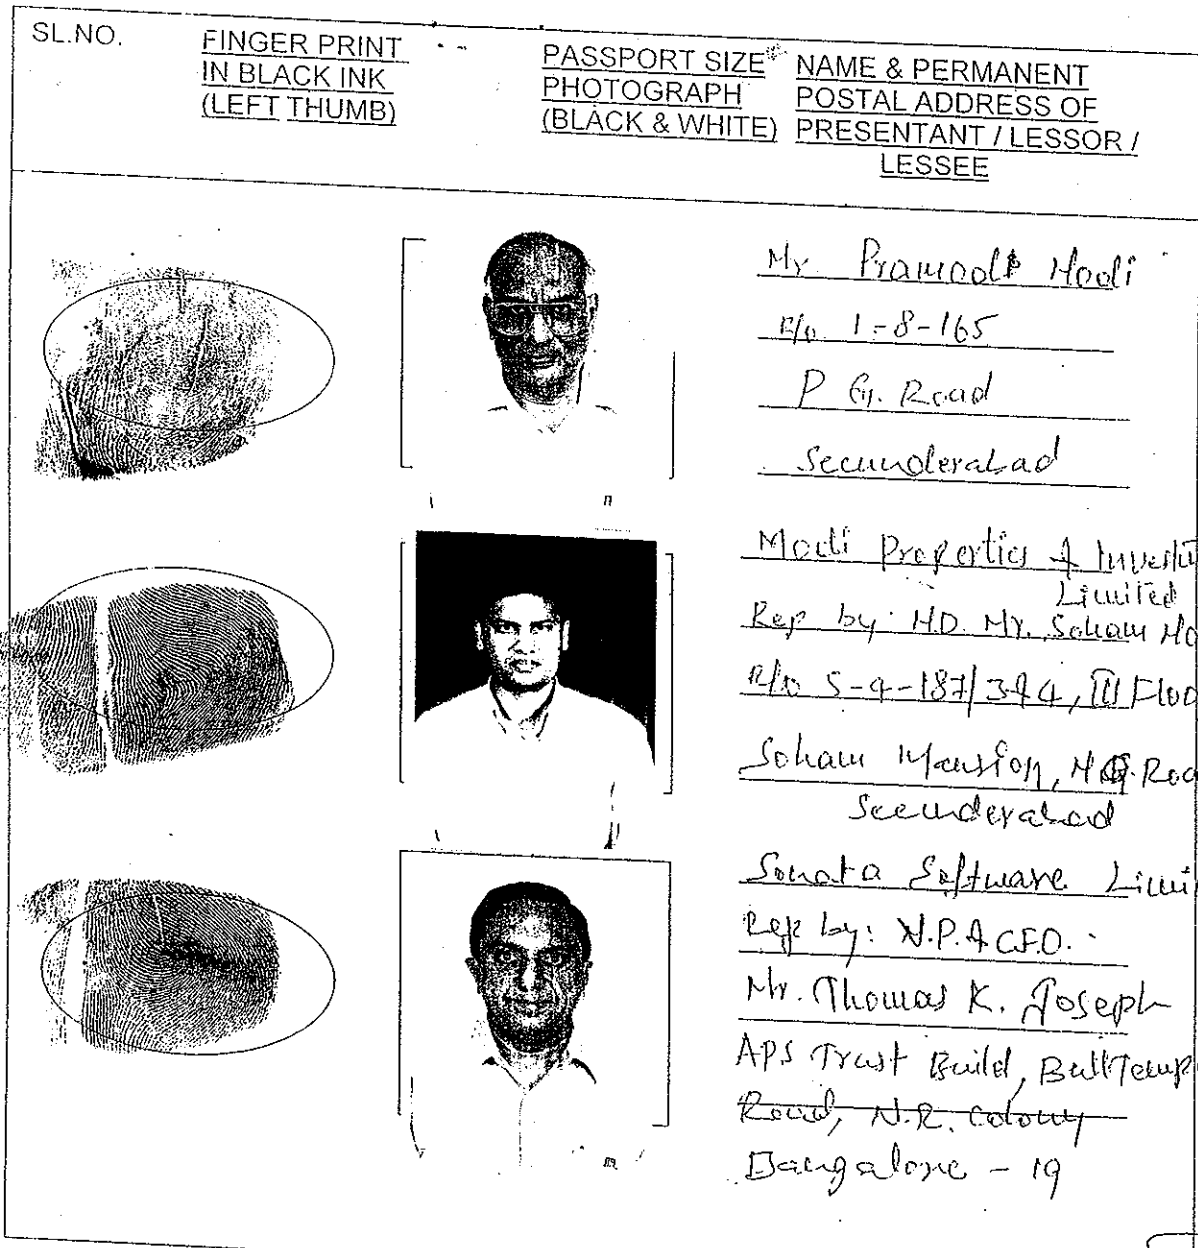 SL.NO.
FINGER PRINT
IN BLACK INK
(LEFT THUMB)
PASSPORT SIZE
PHOTOGRAPH
(BLACK & WHITE)
NAME & PERMANENT
POSTAL ADDRESS OF
PRESENTANT / LESSOR /
LESSEE
Mr Pramod Modi
R/o 1-8-165
P G. Road
Secunderabad
Modi Properties & Investm
Limited
Rep by M.D. Mr. Soham Mo
R/o 5-4-187/3&4, III Floo
Soham Mansion, M.G. Roa
Secunderabad
Sonata Software Limi
Rep by: V.P. & C.F.O.
Mr. Thomas K. Joseph
APS Trust Build, Bull Temp
Road, N.R. Colony
Bangalore - 19